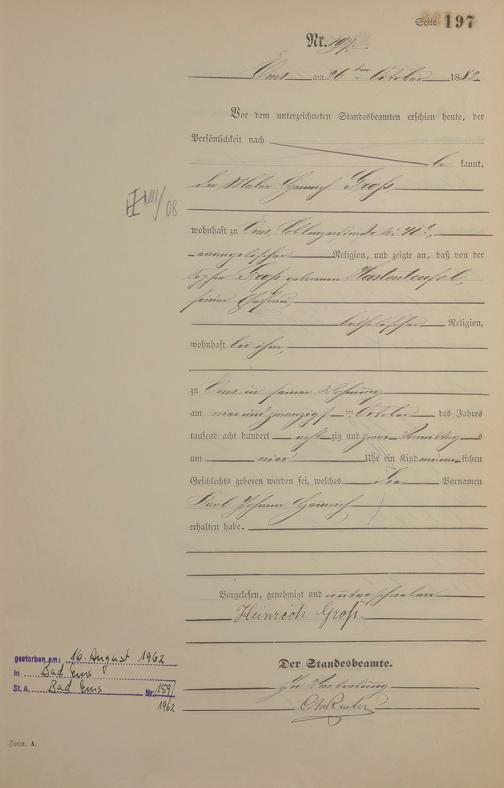 Seite 197
Nr. 197.
Ems am 26 ten October 1882
Vor dem unterzeichneten Standesbeamten erschien heute, der
Persönlichkeit nach
be kannt,
der Maler Heinrich Groß
III/08
wohnhaft zu Ems, Coblenzerstraße
evangelischer Religion, und zeigte an, daß von der
Groß geborenen
seiner Ehefrau,
katholischer Religion,
wohnhaft bei ihm,
zu Ems in seiner Wohnung
am ten October des Jahres
tausend acht hundert acht zig und zwei
um Uhr ein Kind männ lichen
Geschlechts geboren worden sei, welches die Vornamen
Karl Johann Heinrich
erhalten habe.
Vorgelesen, genehmigt und unterschrieben
Heinrich Groß.
Der Standesbeamte.
In Vertretung
gestorben am: 16. August 1962
in Bad Ems
St. A. Bad Ems Nr. 159/
1962
Form. A.